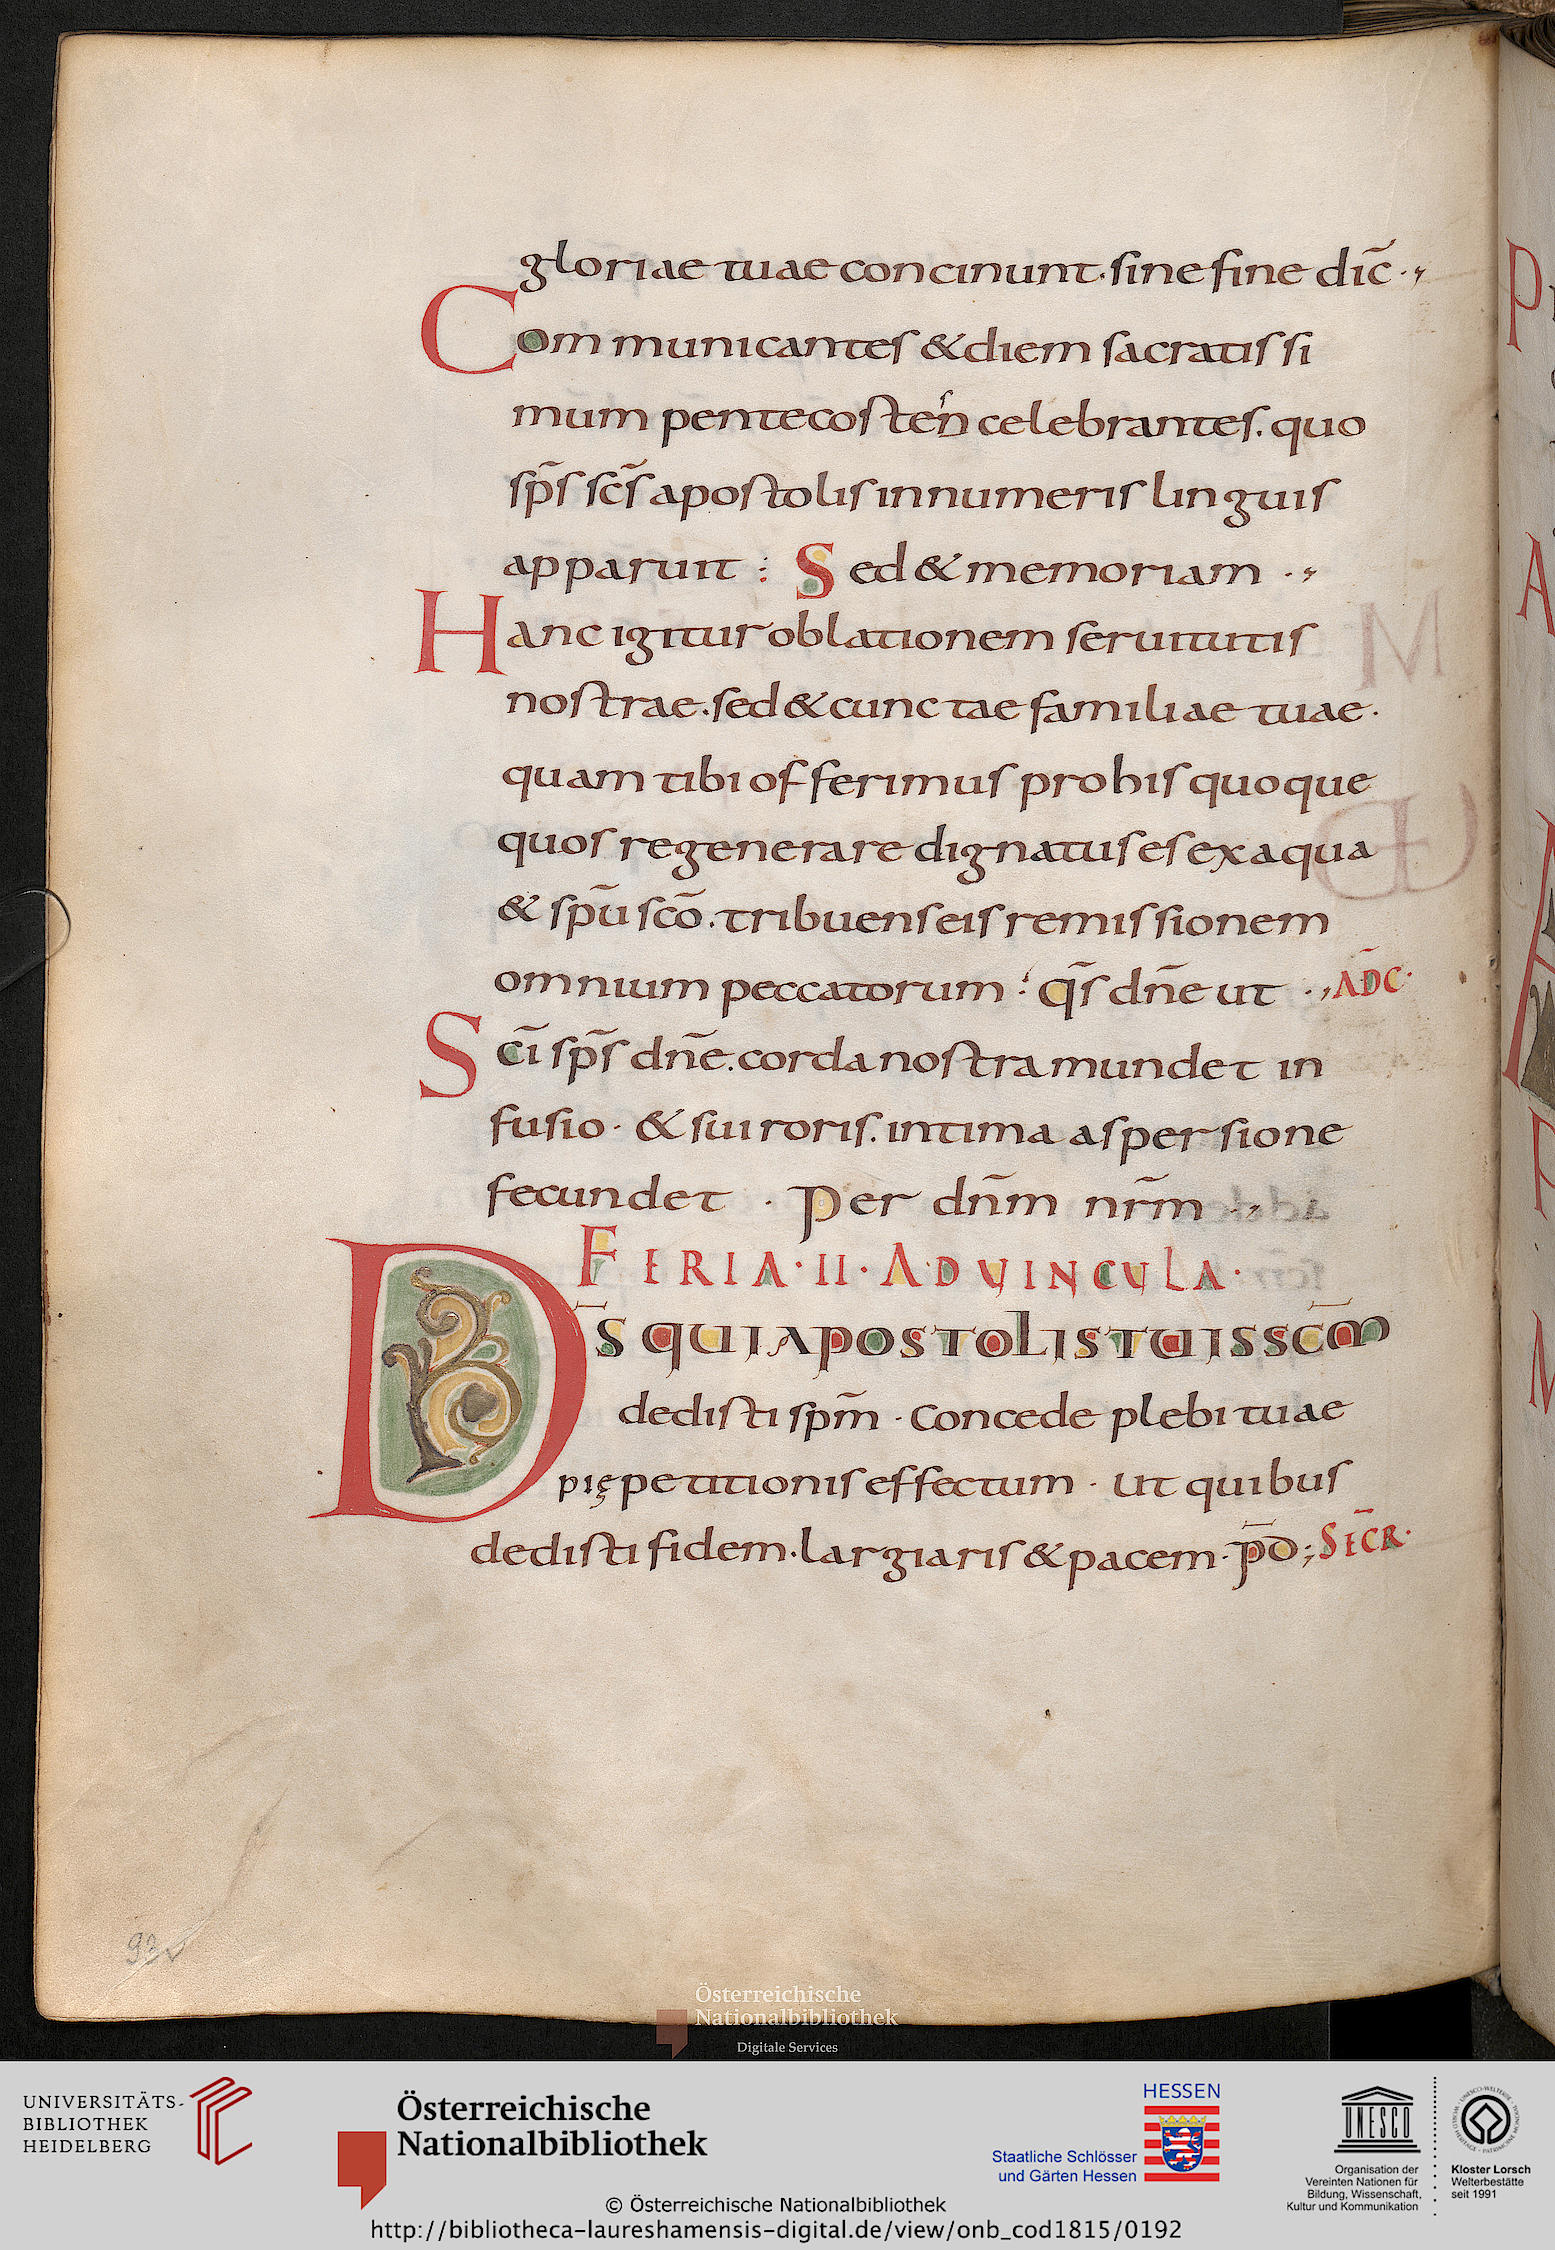 gloriae tuae concinunt. sine fine dic̄ ·,
Communicantes & diem sacratissi
mum pentecosten celebrantes. quo
sp̄s sc̄s apostolis innumeris linguis
apparuit : Sed & memoriam ·,
Hanc igitur oblationem seruitutis
nostrae. sed & cunctae familiae tuae.
quam tibi offerimus pro his quoque
quos regenerare dignatus es ex aqua
& sp̄u sc̄o. tribuens eis remissionem
omnium peccatorum : q̄s dn̄e ut ·, AD̄C·
Sc̄i sp̄s dn̄e. corda nostra mundet in
fusio · & sui roris. intima aspersione
fecundet · Per dn̄m nr̄m ·,
FERIA · II · AD UINCULA ·
D̄S QUI APOSTOLIS TUIS SC̄M
dedisti sp̄m · Concede plebi tuae
pię petitionis effectum · ut quibus
dedisti fidem. largiaris & pacem · p̄d; SEC̄R·
93v
Österreichische
Nationalbibliothek
Digitale Services
UNIVERSITÄTS-
BIBLIOTHEK
HEIDELBERG
Österreichische
Nationalbibliothek
HESSEN
Staatliche Schlösser
und Gärten Hessen
UNESCO
Organisation der
Vereinten Nationen für
Bildung, Wissenschaft,
Kultur und Kommunikation
Kloster Lorsch
Welterbestätte
seit 1991
© Österreichische Nationalbibliothek
http://bibliotheca-laureshamensis-digital.de/view/onb_cod1815/0192